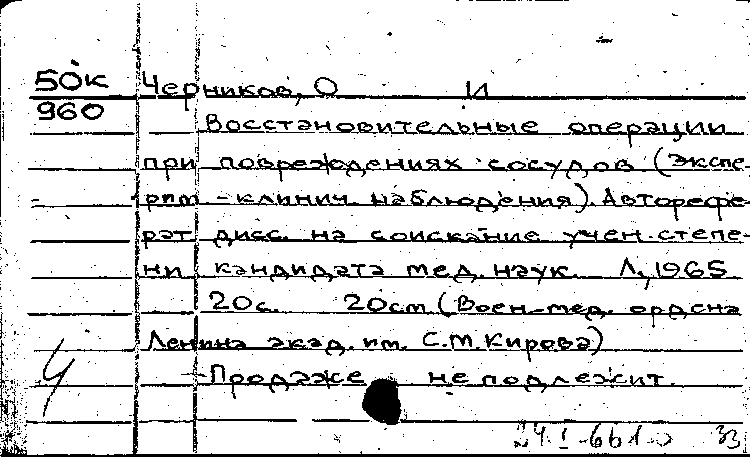 50к Черников, О И
960
Восстановительные операции
при повреждениях сосудов (экспе-
рим-клинич. наблюдения). Авторефе-
рат дисс. на соискание учен. степе-
ни кандидата мед. наук. Л, 1965
20с. 20см (Воен-мед. ордена
Ленина акад. им. С.М. Кирова)
Продаже не подлежит.
Ч
33